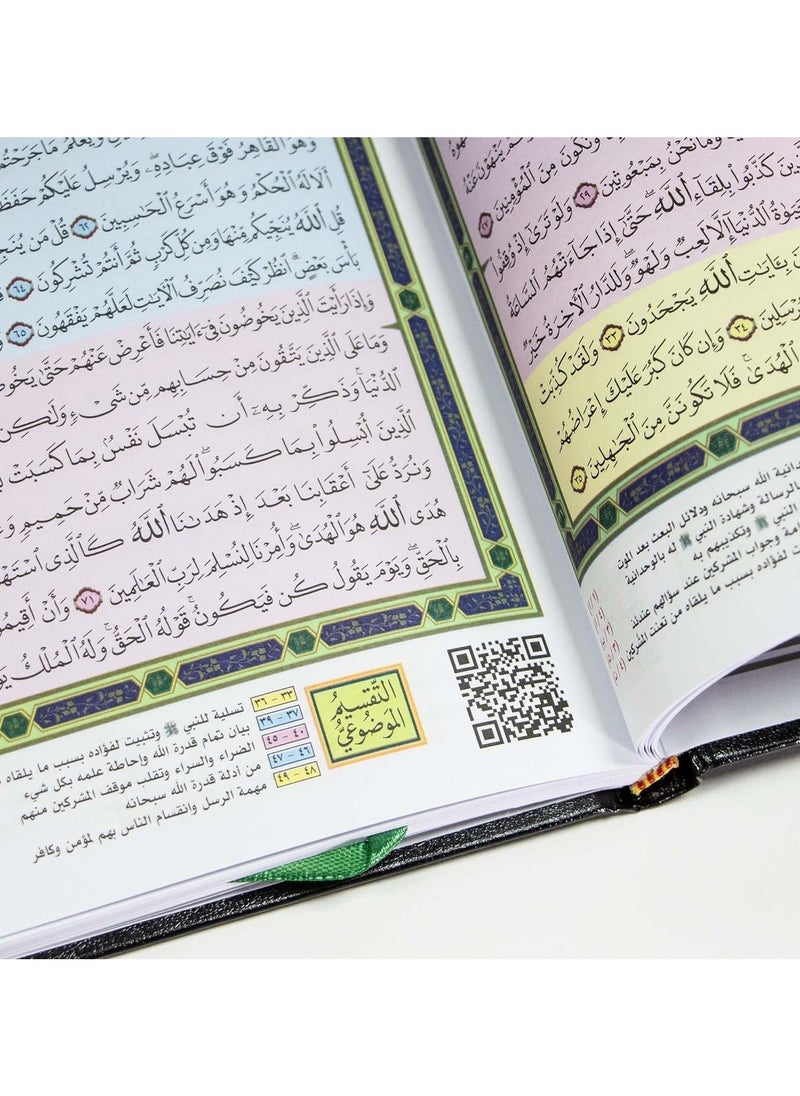 وهو القاهر فوق عباده ۖ ويرسل عليكم حفظة
ألا له الحكم وهو أسرع الحاسبين ٦٢ قل من ينج
قل الله ينجيكم منها ومن كل كرب ثم أنتم تشركون ٦٤
بأس بعض ۗ انظر كيف نصرف الآيات لعلهم يفقهون ٦٥
وإذا رأيت الذين يخوضون في ءاياتنا فأعرض عنهم حتى يخوضوا
وما على الذين يتقون من حسابهم من شيء ولكن
الدنيا ۚ وذكر به أن تبسل نفس بما كسبت
الذين أبسلوا بما كسبوا ۖ لهم شراب من حميم
ونرد على أعقابنا بعد إذ هدىنا الله كالذي استهو
هدى الله هو الهدى ۖ وأمرنا لنسلم لرب العالمين ٧١ وأن أقيموا
بالحق ۖ ويوم يقول كن فيكون ۚ قوله الحق ۚ وله الملك
التقسيم
الموضوعي
٣٣ - ٣٦ تسلية للنبي ﷺ وتثبيت لفؤاده بسبب ما يلقاه
٣٧ - ٣٩ بيان تمام قدرة الله وإحاطة علمه بكل شيء
٤٠ - ٤٥ الضراء والسراء وتقلب موقف المشركين منهم
٤٦ - ٤٧ من أدلة قدرة الله سبحانه
٤٨ - ٤٩ مهمة الرسل وانقسام الناس بهم لمؤمن وكافر
وما نحن بمبعوثين ٢٩ ولو ترى إذ وقفوا
ذين كذبوا بلقاء الله ۖ حتى إذا جاءتهم الساعة
الدنيا إلا لعب ولهو ۖ وللدار الآخرة خير
بآيات الله يجحدون ٣٣ ولقد كذبت
رسلين ٣٤ وإن كان كبر عليك إعراضهم
الهدى ۚ فلا تكونن من الجاهلين ٣٥
دانية الله سبحانه ودلائل البعث بعد الموت
الرسالة وشهادة النبي ﷺ له بالوحدانية
النبي ﷺ وتكذيبهم به
وجواب المشركين عند سؤالهم عندئذ
لفؤاده بسبب ما يلقاه من تعنت المشركين